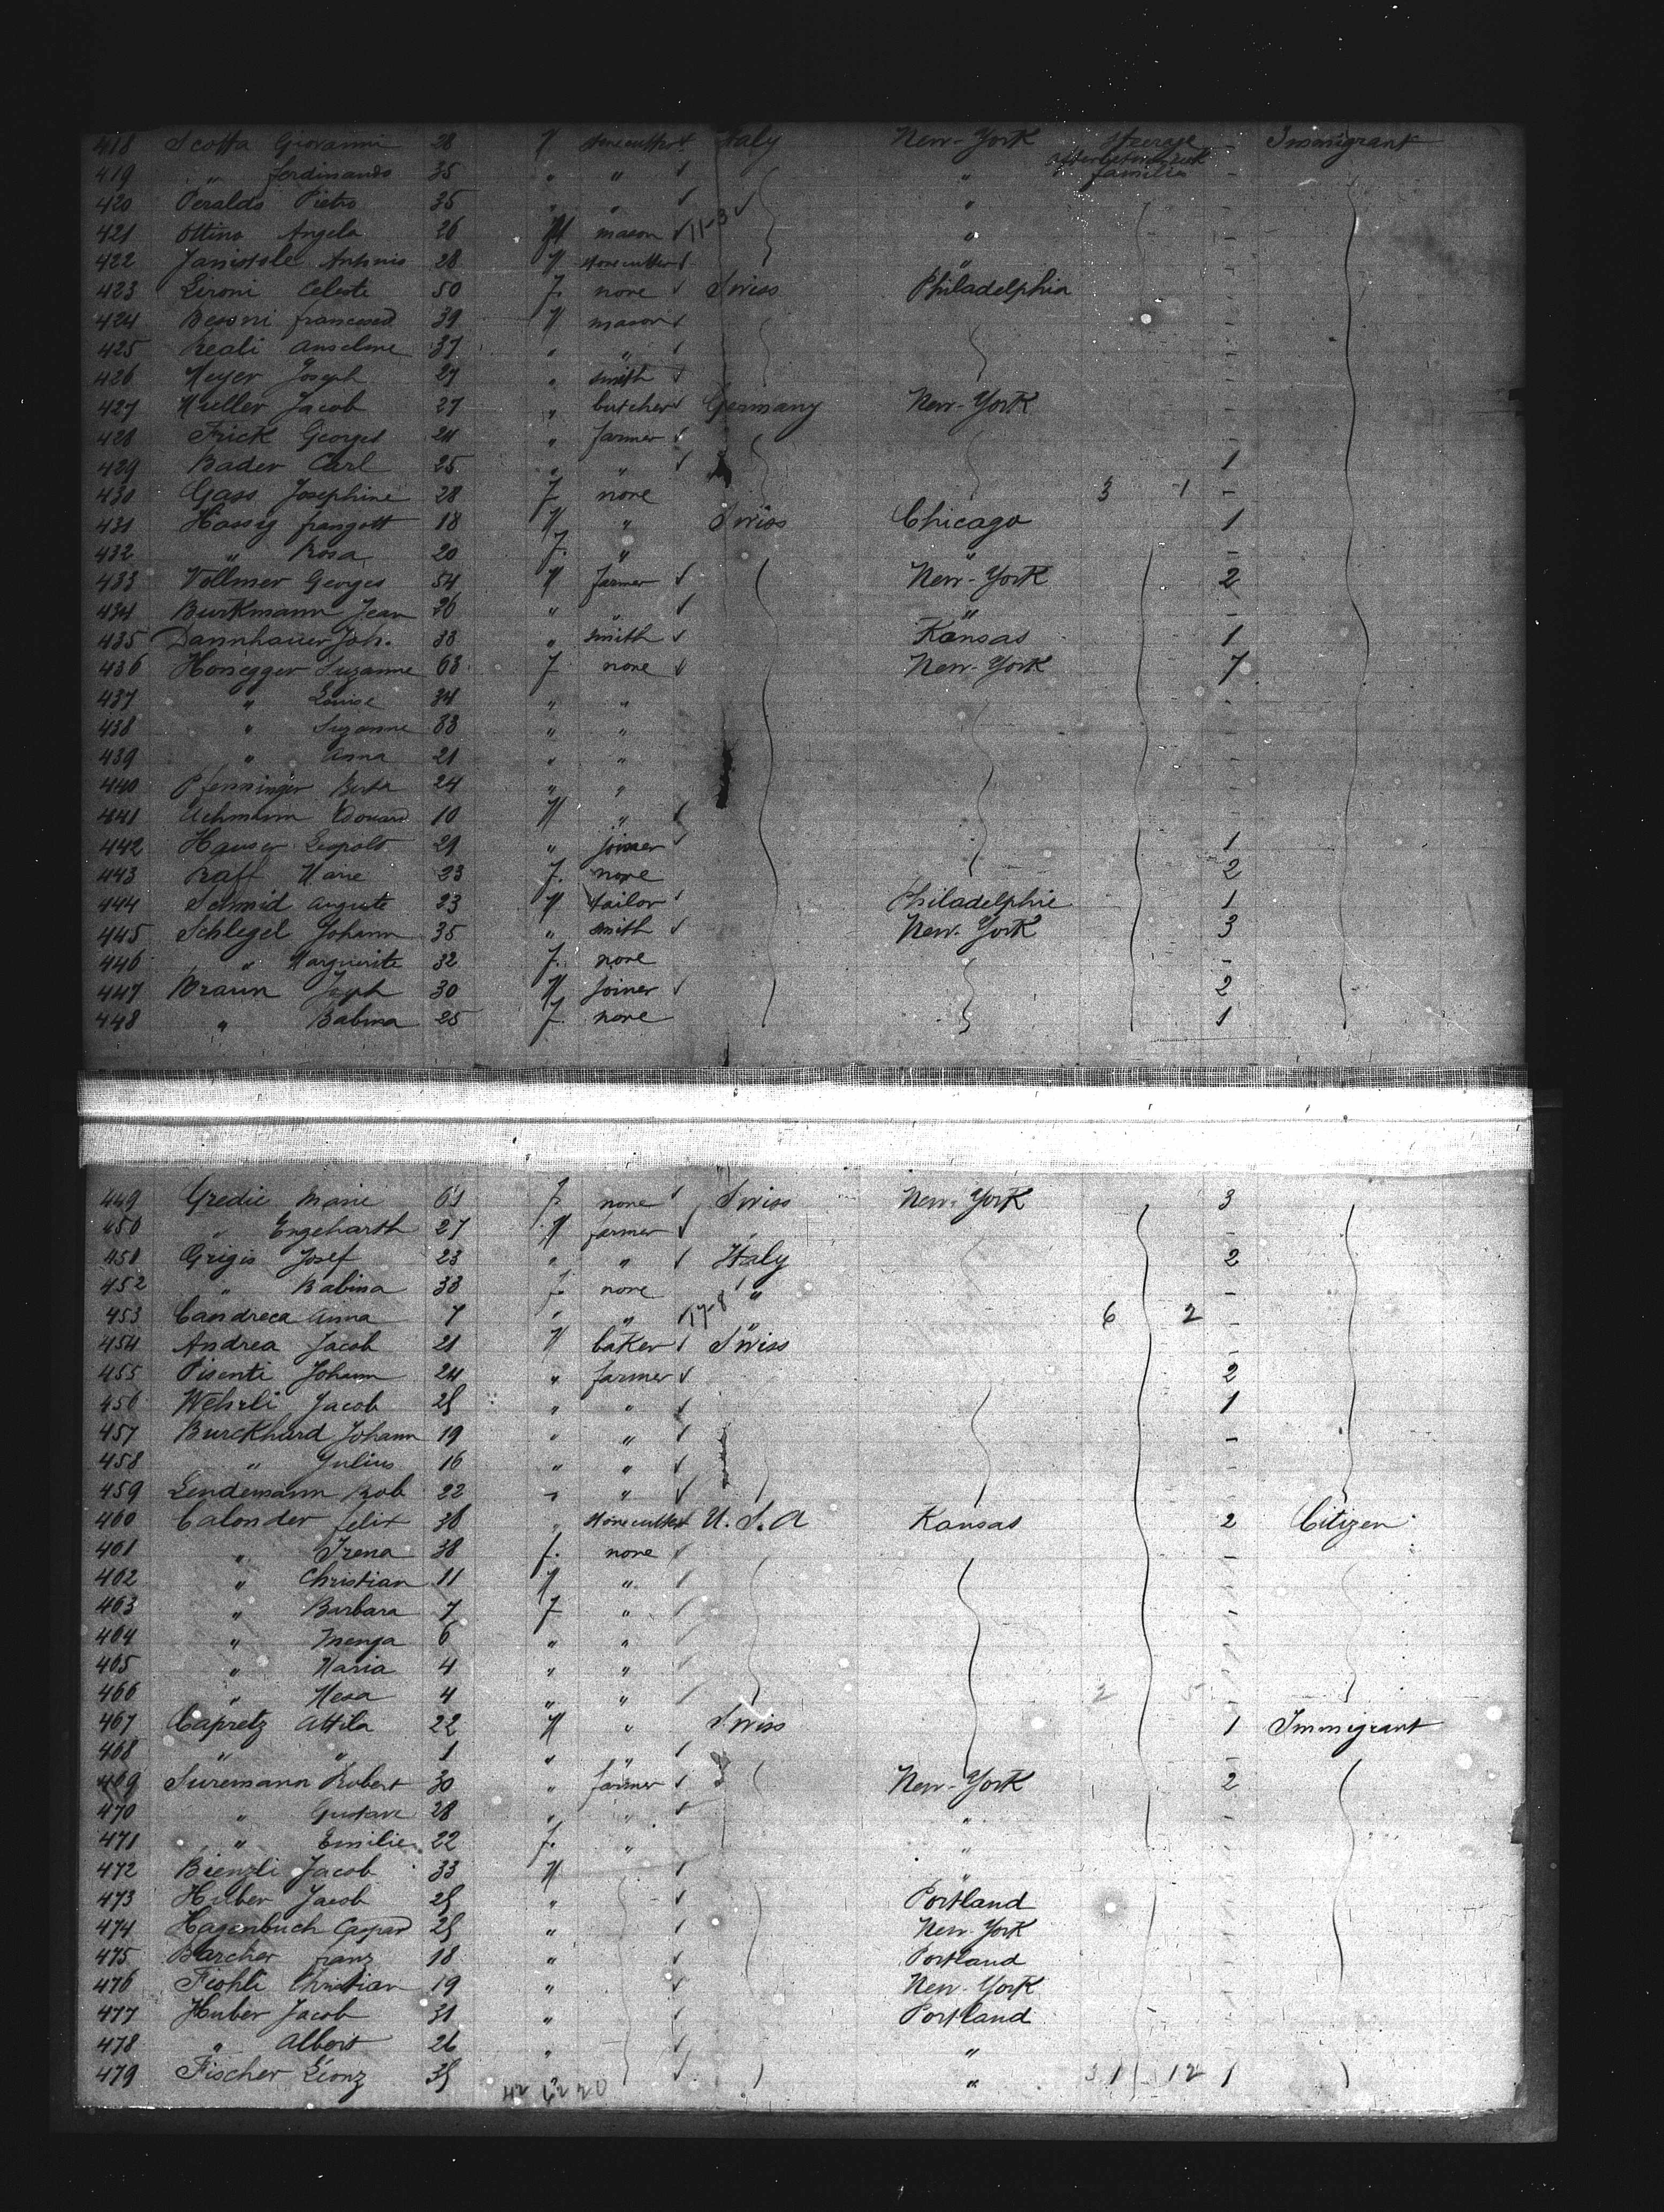 418 Scotta Giovanni 28 M stonecutter Italy New-York Steerage - Immigrant
419 " Ferdinando 35 " " " afterbetweendeck families -
420 Peraldo Pietro 35 " " " -
421 Ottino Angela 26 M mason 11-3 " -
422 Antonio 28 M stonecutter " -
423 Leroni Celeste 50 f. none Swiss Philadelphia -
424 Besoni francesco 39 M mason -
425 Reali Anselme 37 " " -
426 Meyer Joseph 27 " smith -
427 Muller Jacob 27 " butcher Germany New-York -
428 Frick Georges 24 " farmer -
429 Bader Carl 25 " " 1
430 Gass Josephine 28 f. none 3 1 -
431 Hassig frangott 18 M " Swiss Chicago 1
432 " Rosa 20 f. " " -
433 Vollmer Georges 54 M farmer New-York 2
434 Burkmann Jean 26 " " " -
435 Dannhauer Joh. 33 " smith Kansas 1
436 Honegger Suzanne 63 f none New-York 7
437 " Louise 34 " " -
438 " Suzanne 33 " " -
439 " Anna 21 " " -
440 Pfenninger Berta 24 " " -
441 Achmann Edouard 10 M " -
442 Hauser Leopold 29 " joiner 1
443 Raff Marie 23 f. none 2
444 Schmid Auguste 23 M tailor Philadelphie 1
445 Schlegel Johann 35 " smith New-York 3
446 " Marguerite 32 f. none -
447 Braun Joseph 30 M Joiner 2
448 " Babina 25 f. none 1
449 Gredic Marie 61 f. none Swiss New-York 3
450 " Engelharth 27 M farmer " -
451 Grigis Josef 23 " " Italy 2
452 " Babina 33 f. none " -
453 Candreca Anna 7 " " 17-8 " 6 2 -
454 Andrea Jacob 21 M baker Swiss -
455 Pisenti Johann 24 " farmer 2
456 Wehrli Jacob 25 " " 1
457 Burckhard Johann 19 " " -
458 " Julius 16 " " -
459 Lendemann Rob 22 " " -
460 Calonder felix 38 " stonecutter U.S.A Kansas 2 Citizen
461 " Irena 38 f. none -
462 " Christian 11 M " -
463 " Barbara 7 f " -
464 " Menga 6 " " -
465 " Maria 4 " " -
466 " Nesa 4 " " 2 5 -
467 Capretz Attila 22 M " Swiss 1 Immigrant
468 " " 1 " " -
469 Suremann Robert 30 " farmer New-York 2
470 " Gustave 28 " " " -
471 " Emilie 22 f. " " -
472 Bienzli Jacob 33 M " -
473 Huber Jacob 25 " Portland -
474 Hagenbuch Caspar 25 " New-York -
475 Barcher franz 18 " Portland -
476 Christian 19 " New-York -
477 Huber Jacob 31 " Portland -
478 " Albert 26 " " -
479 Fischer Leonz 35 " 31 12 1
42 20